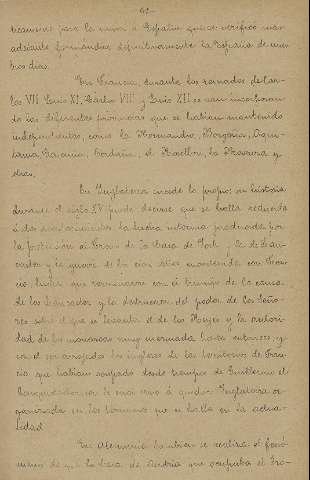 61
para la unión á España que se verificó más
adelante formándose definitivamente la España de nues-
tros días.
En Francia, durante los reinados de Car-
los VII Luis XI, Carlos VIII y Luis XII se van incorporan-
do las diferentes provincias que se habían mantenido
independientes, como la Normandía, Borgoña, Aqui-
tania, el Rosellón, la Provenza y
otras.
En Inglaterra sucede lo propio; su historia
durante el siglo XV puede decirse que se halla reducida
á dos la lucha interna producida por
la de la Casa de York y la de Lan-
caster y la guerra de los cien años mantenida con Fran-
cia, luchas que terminaron con el triunfo de la causa
de los y la destrucción del poder de los Seño-
res sobre el que se levantó el de los Reyes y la autori-
dad de los monarcas muy mermada hasta entonces, y
con el ser arrojados los ingleses de los territorios de Fran-
cia que habían ocupado desde tiempos de Guillermo el
Conquistador, con lo cual vino á quedar Inglaterra or-
ganizada en los términos que se halla en la actua-
lidad.
En Alemania también se realiza el fenó-
meno de que la Casa de Austria que ocupaba el tro-